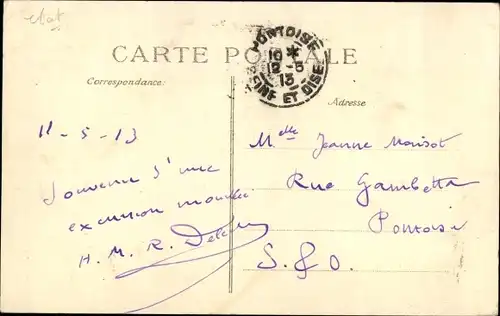 CARTE POSTALE
Correspondance:
Adresse
PONTOISE
10 *
12-5
13
SEINE ET OISE
11-5-13
Souvenir d'une
excursion
H. M. R.
Melle Jeanne
Rue Gambetta
Pontoise
S. & O.